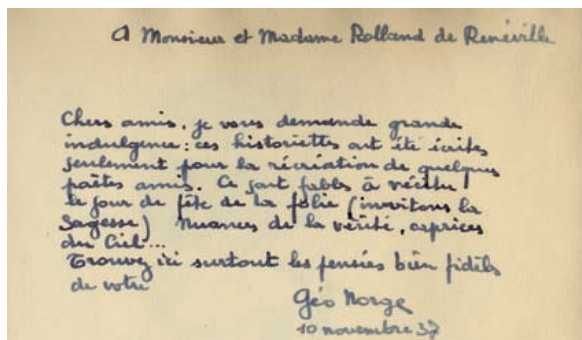 A Monsieur et Madame Rolland de Renéville
Chers amis, je vous demande grande
indulgence : ces historiettes ont été écrites
seulement pour la récréation de quelques
poètes amis. Ce sont fables à réciter
le jour de fête de la folie (invitons la
Sagesse) Nuances de la vérité, caprices
du Ciel...
Trouvez ici surtout les pensées bien fidèles
de votre
Géo Norge
10 novembre 37